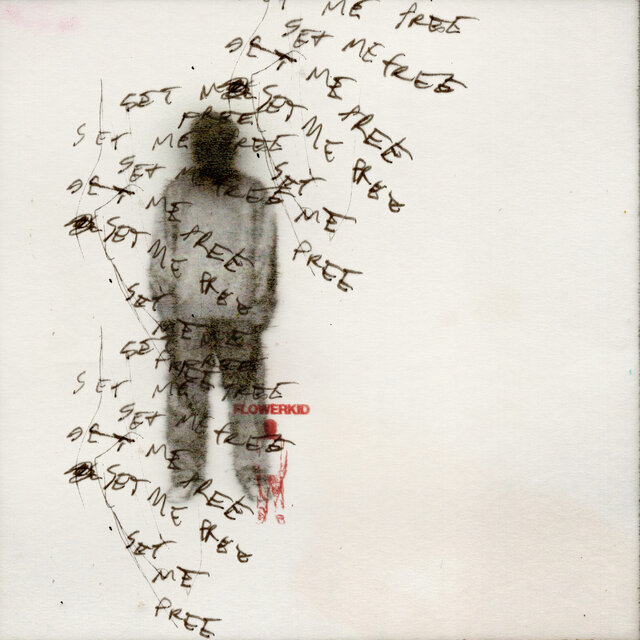 ME FREE
SET ME FREE
SET
ME FREE
SET ME
SET
FREE
ME FREE
SET ME FREE
SET ME FREE
SET
SET ME FREE
SET
ME
FREE
ME
SET ME FREE
FREE
SET
ME
FREE
SET ME FREE
SET ME FREE
FLOWERKID
SET ME FREE
SET ME FREE
SET ME FREE
SET
ME
FREE